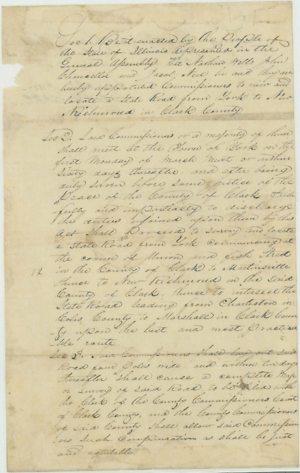 Sec 1. Be it enacted by the People of
the State of Illinois Represented in the
General Assembly. That
and they are
hereby appointed Commissioners to view and
locate a State Road from York to New
Richmond in Clark County
Sec 2. Said Commissioners or a majority of them
shall meet at the Town of York on the
first Monday of March next or within
Sixty days thereafter and after being
duly sworn before some Justice of the
Peace of the County of Clark faith
fully and impartially to discharge
the duties imposed upon them by this
Act shall Proceed to survey and locate
a State Road from York Commencing at
the corner of Union and Street
in the County of Clark to Martinsville
thence to New Richmond in the said
County of Clark, thence to intersect the
State Road leading from Charleston in
Coles County to Marshall in Clark Coun
ty upon the best and most Practica
ble route.
Sec 3. Said Commissioners shall lay out said
Road feet wide and within days
thereafter shall cause a complete Map
or survey of said Road to be filed with
the Clerk of the County Commissioners Court
of Clark County, and the County Commissioners
of said County shall allow said Commission
ers such Compensation as shall be just
and equitable